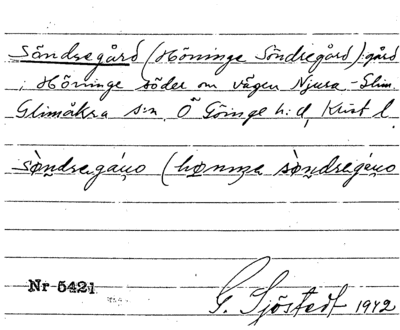 Söndregård (Höninge Söndregård): gård
i Höninge söder om vägen Njura - Glim.
Glimåkra s:n Ö Göinge h:d, Krist l
sǿndregáųo (hønnıŋe sǿndregáųo
Nr 5421
G. Sjöstedt 1942